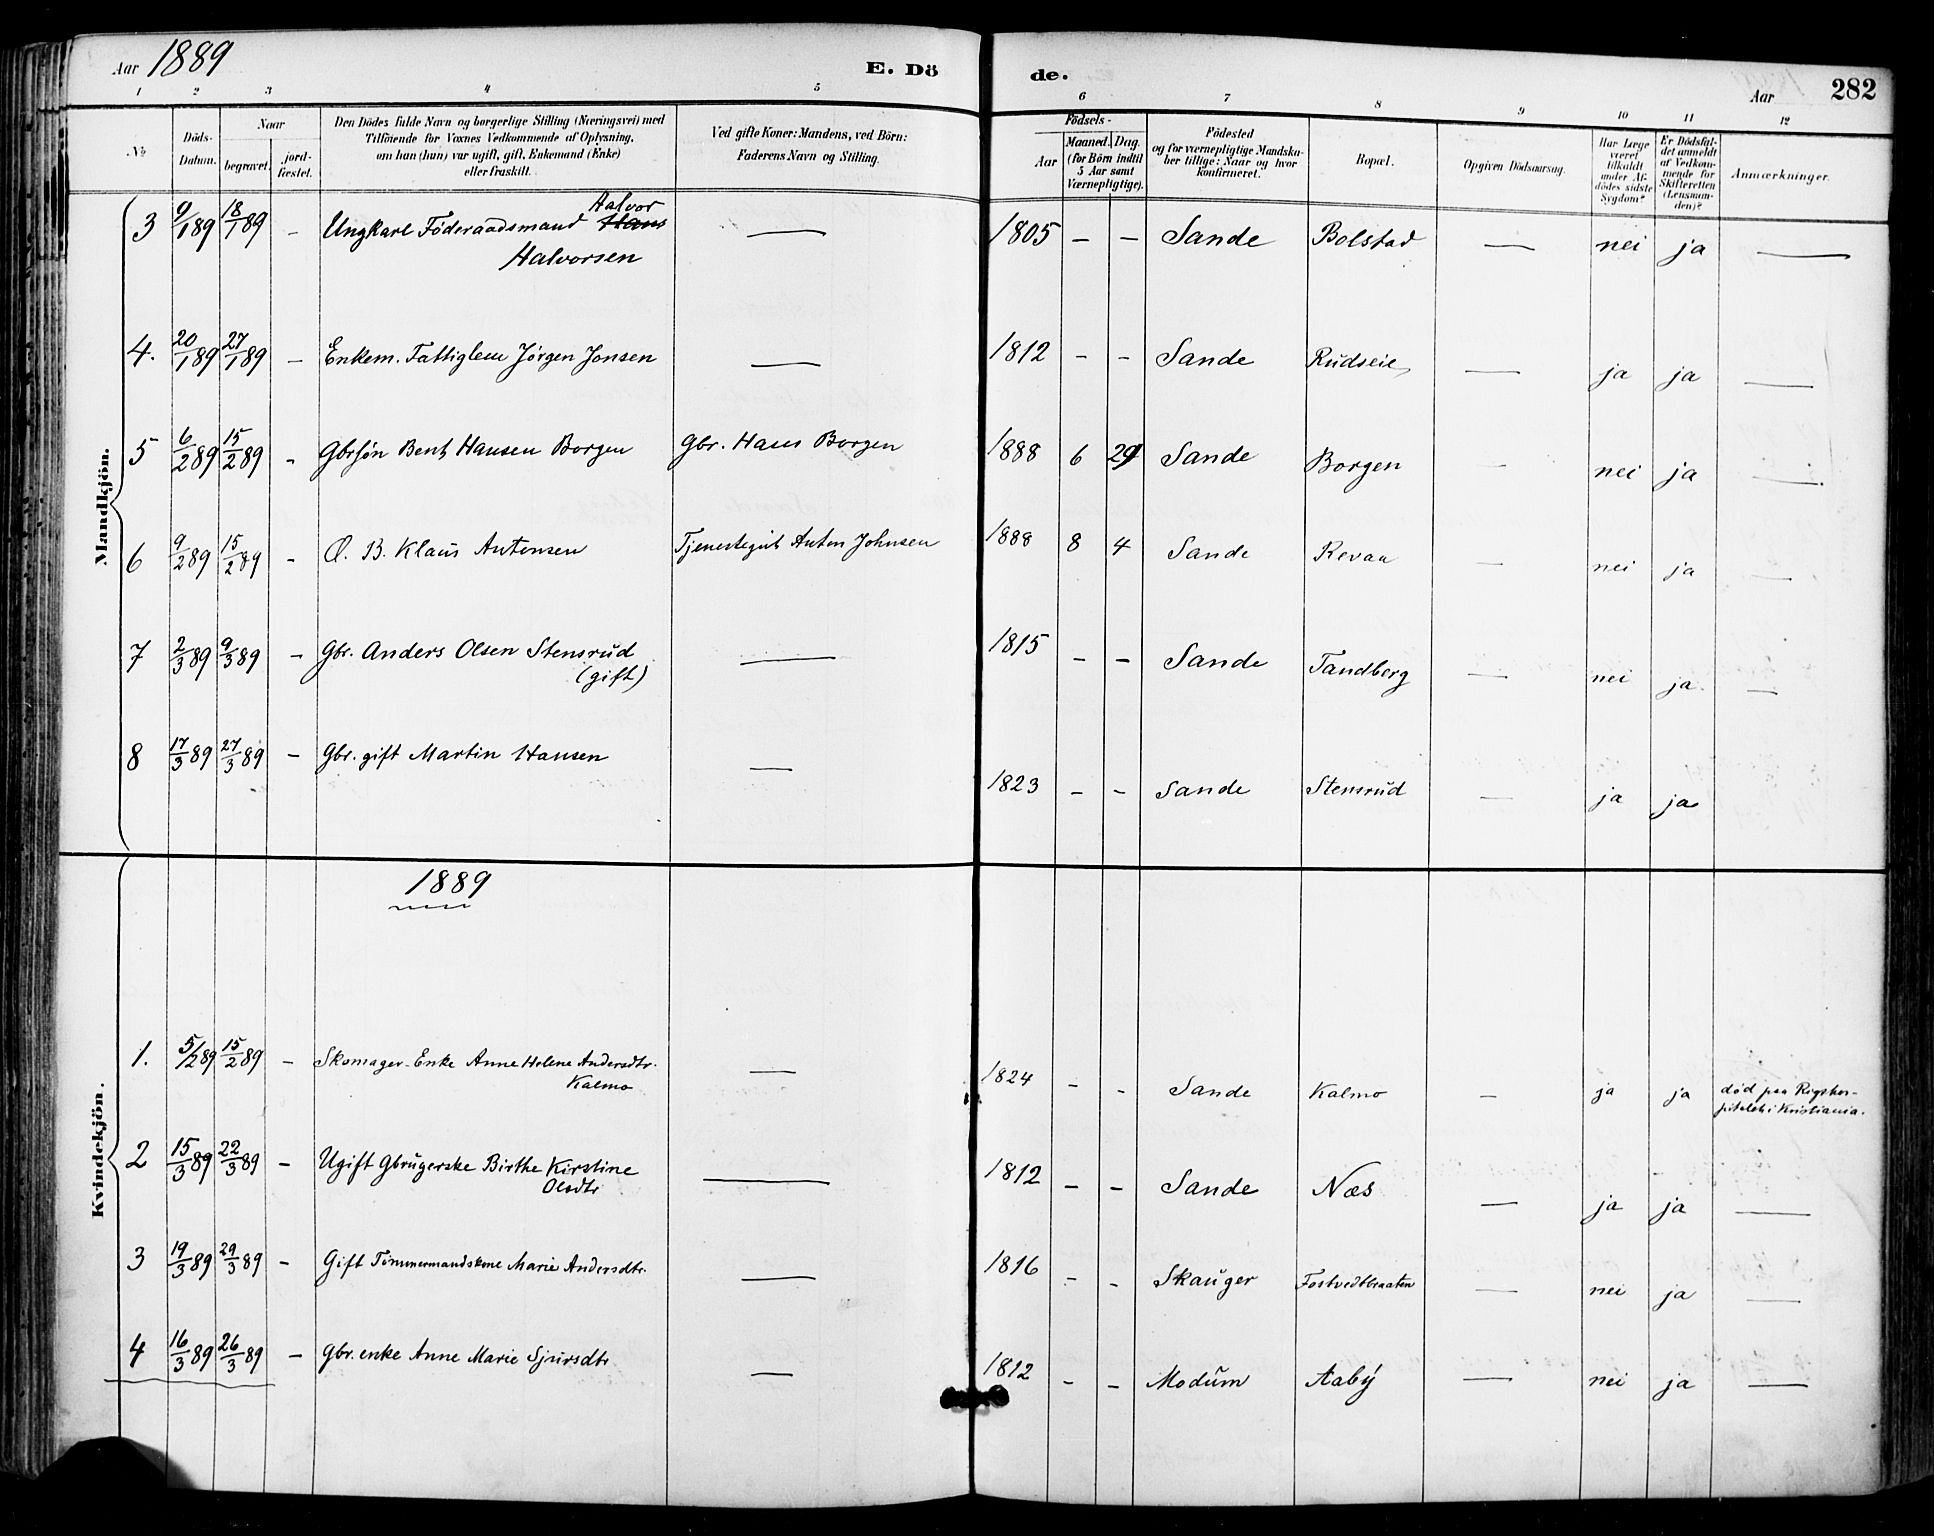 Aar 1889 E. Döde. Aar 282
1 2 3 4 5 6 7 8 9 10 11 12
No
Döds-Datum.
Naar
begravet.
jord-fæstet.
Den Dödes fulde Navn og borgerlige Stilling (Næringsvei) med
Tilföiende for Voxnes Vedkommende af Oplysning,
om han (hun) var ugift, gift, Enkemand (Enke)
eller fraskilt.
Ved gifte Koner: Mandens, ved Börn:
Faderens Navn og Stilling.
Födsels-
Aar
Maaned. Dag.
(for Börn indtil
5 Aar samt
Værnepligtige).
Födested
og for værnepligtige Mandska-
ber tillige: Naar og hvor
konfirmeret.
Bopæl.
Opgiven Dödsaarsag.
Har Læge
været
tilkaldt
under Af-
dödes sidste
Sygdom?
Er Dödsfal-
det anmeldt
af Vedkom-
mende for
Skifteretten
(Lensman-
den)?
Anmærkninger.
Mandkjön.
3 9/1 89 18/1 89 – Ungkarl Föderaadsmand Hans Halvor — 1805 – – Sande Bolstad — nei ja —
Halvorsen
4. 20/1 89 27/1 89 – Enkem. Fattiglem Jörgen Jonsen — 1812 – – Sande Rudseie — ja ja —
5 6/2 89 15/2 89 – Gbrsön Bent Hansen Borgen Gbr. Hans Borgen 1888 6 29 Sande Borgen — nei ja —
6 9/2 89 15/2 89 – O. B. Klaus Antonsen Tjenestegut Anton Johnsen 1888 8 4 Sande Revaa — nei ja —
7 2/3 89 9/3 89 – Gbr. Anders Olsen Stensrud — 1815 – – Sande Tandberg — nei ja —
(gift)
8 17/3 89 27/3 89 – Gbr. gift Martin Hansen — 1823 – – Sande Stensrud — ja ja
Kvindekjön.
1889
1. 5/2 89 15/2 89 – Skomager-Enke Anne Helene Andersdtr. — 1824 – – Sande Kalmo – ja ja død paa Rigshos-
Kalmo pitalet i Kristiania.
2 15/3 89 22/3 89 – Ugift Gbrugerske Birthe Kirstine — 1812 – – Sande Næs — ja ja —
Olsdtr
3 19/3 89 29/3 89 – Gift Tömmermandskone Marie Andersdtr. — 1816 – – Skauger Fostvedtbraaten — nei ja —
4 16/3 89 26/3 89 – Gbr. enke Anne Marie Sjursdtr — 1812 – – Modum Aaby — nei ja —